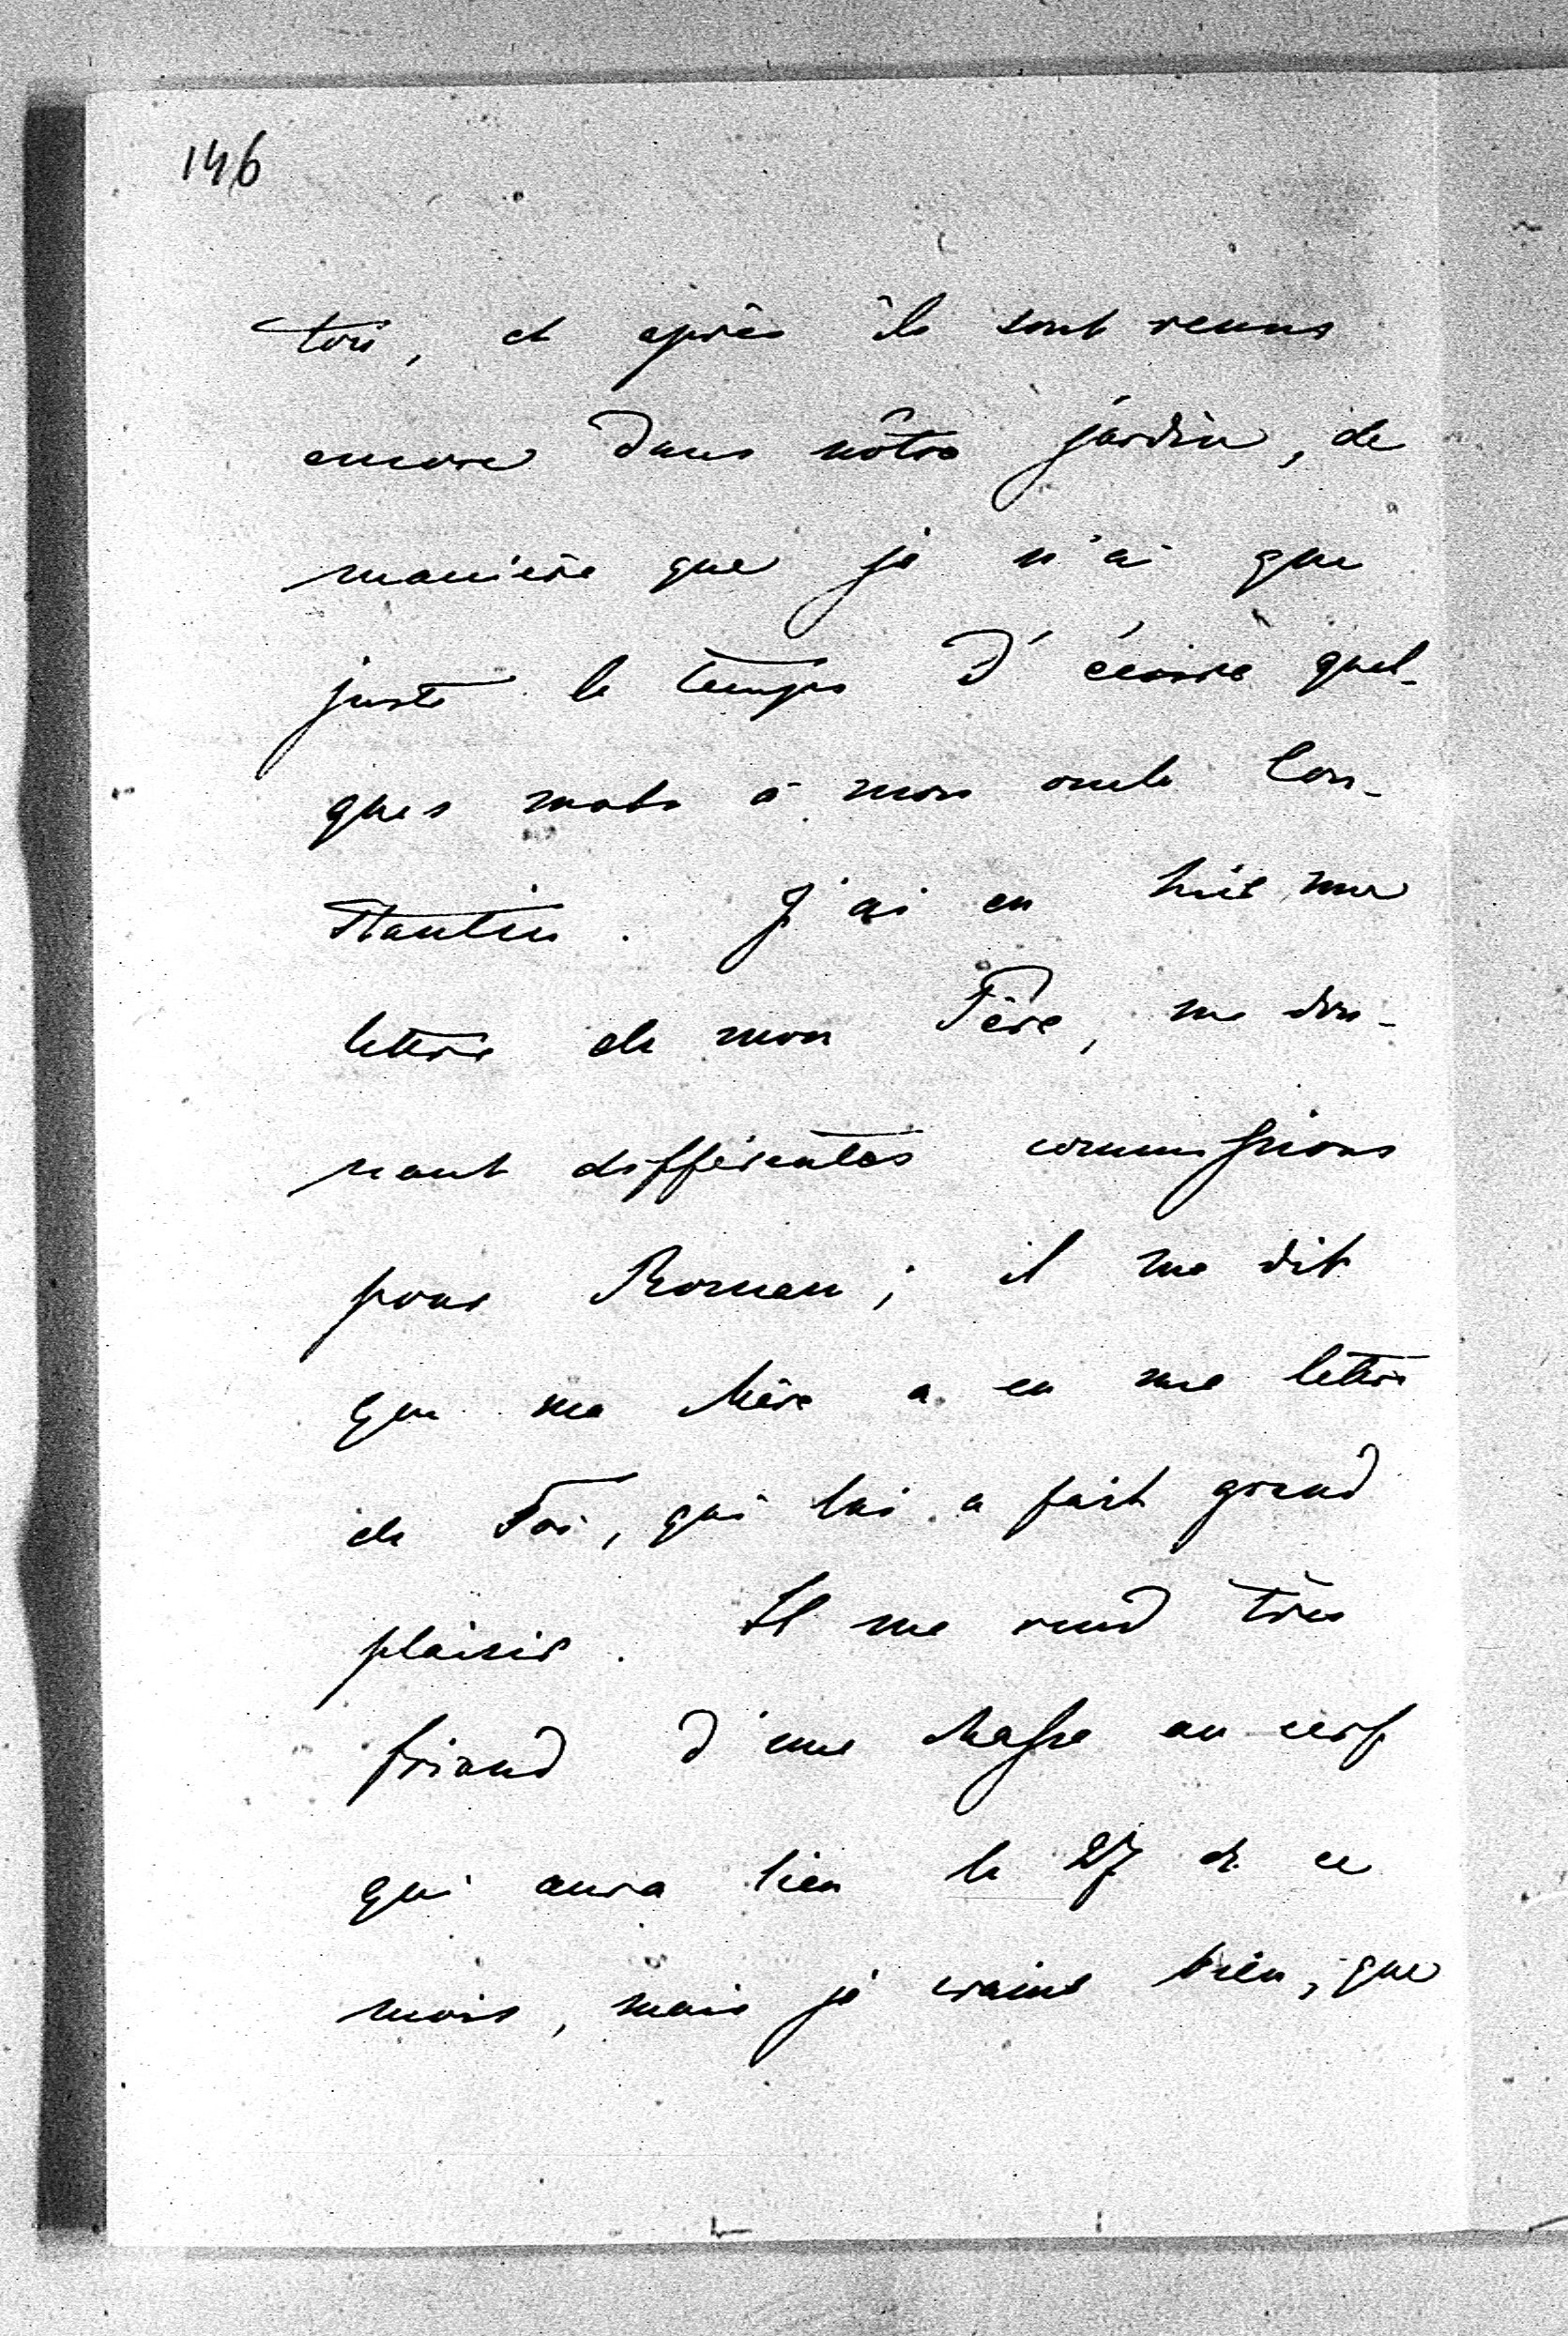 146
toi, et après ils sont venus
encore dans nôtre jardin, de
manière que je n'ai que
juste le temps d'écrire quel-
ques mots à mon oncle Con-
stantin. J'ai eu hier une
lettre de mon Père, me don-
nant différentes commissions
pour Roman; il me dit
que ma Mère a eu une lettre
de Toi, qui lui a fait grand
plaisir. Il me rend très
friand d'une chasse au cerf
qui aura lieu le 27 de ce
mois, mais je crains bien, que